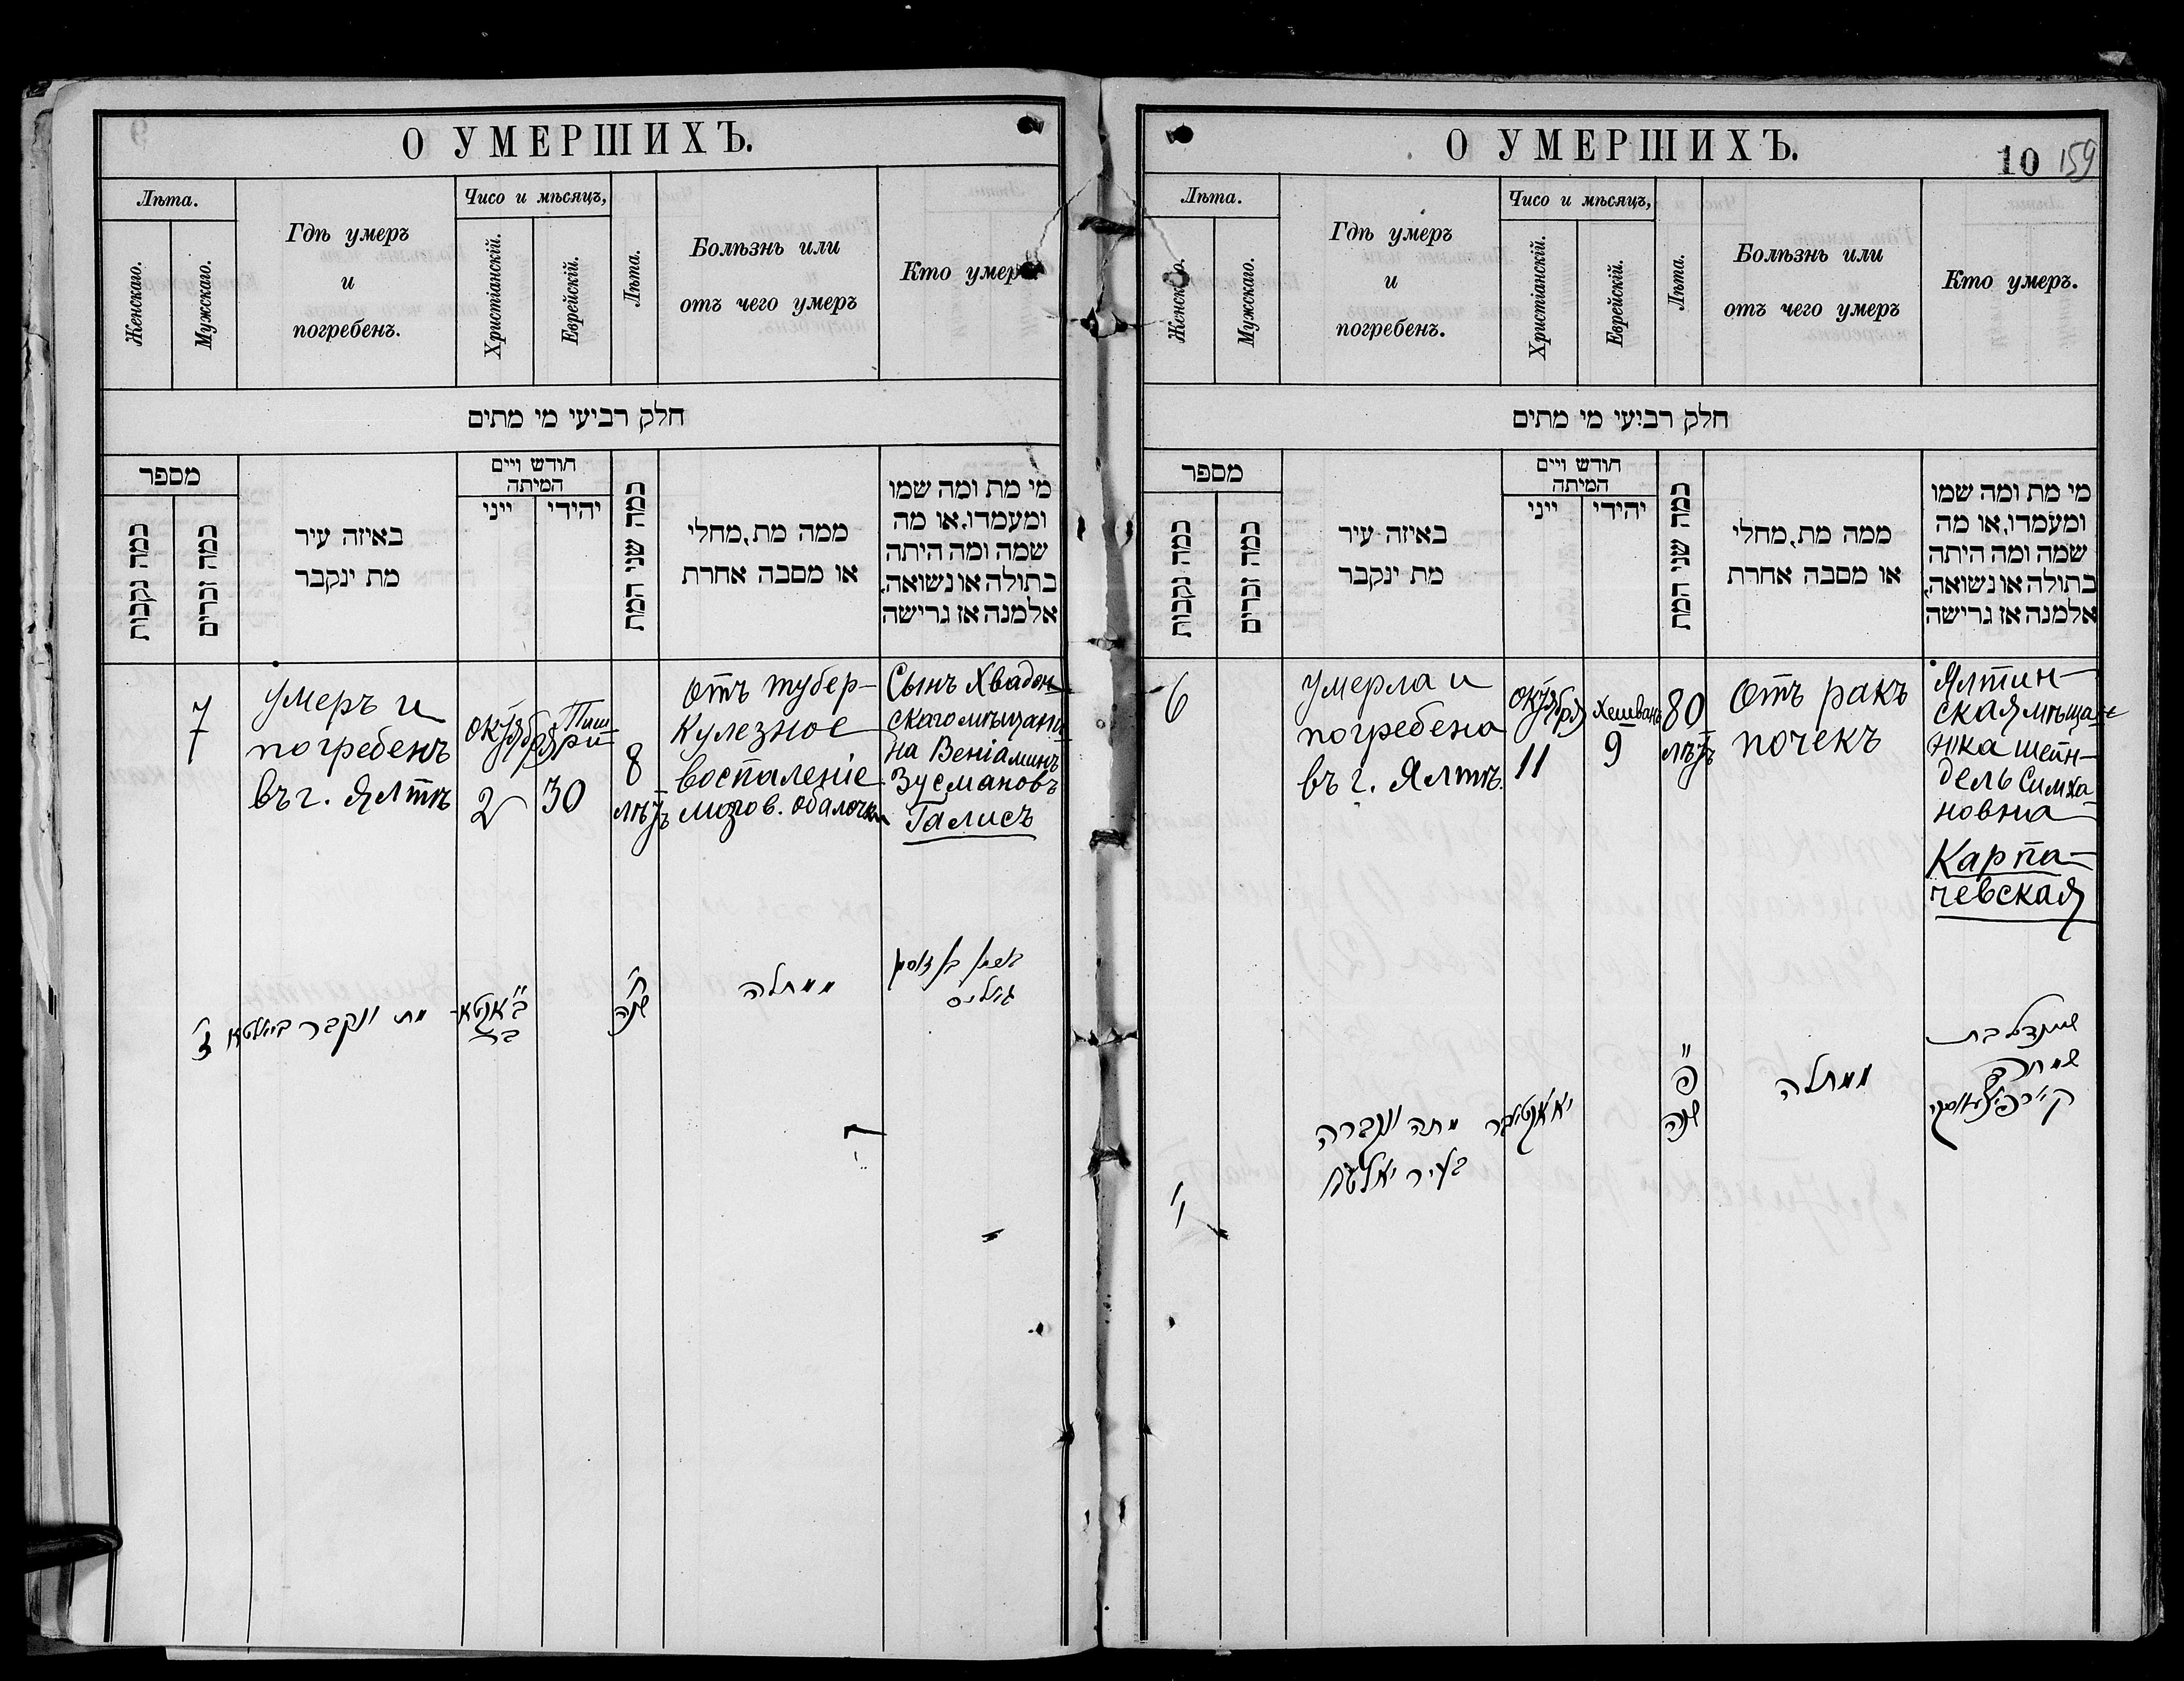 О УМЕРШИХЪ.
Лѣта.
Женскаго.
Мужскаго.
Гдѣ умеръ
и
погребенъ.
Чисо и мѣсяцъ,
Христіанскій.
Еврейскій.
Лѣта.
Болѣзнь или
отъ чего умеръ
Кто умеръ.
חלק רביעי מי מתים
מספר
כמה נקבות
כמה זכרים
באיזה עיר
מת ינקבר
חודש ויים
המיתה
ייני
יהידי
כמה שני המת
ממה מת, מחלי
או מסבה אחרת
מי מת ומה שמו
ומעמדו, או מה
שמה ומה היתה
בתולה או נשואה,
אלמנה אז גרישה
7
умеръ и
погребенъ
въ г. Ялтѣ
октября
2
Тиш-
ри
30
8
лѣтъ
Отъ тубер-
кулезное
воспаленіе
мозгов. оболочки
Сынъ Хвадан-
скаго мѣщани-
на Веніаминъ
Зусмановъ
Галисъ
ז'
מת ונקבר ביאלטא
ב"אקטא
בר
ח'
שנה
ממחלה
בן זוסמן
גאליס
О УМЕРШИХЪ.
10 159
Лѣта.
Женскаго.
Мужскаго.
Гдѣ умеръ
и
погребенъ.
Чисо и мѣсяцъ,
Христіанскій.
Еврейскій.
Лѣта.
Болѣзнь или
отъ чего умеръ
Кто умеръ.
חלק רביעי מי מתים
מספר
כמה נקבות
כמה זכרים
באיזה עיר
מת ינקבר
חודש ויים
המיתה
ייני
יהידי
כמה שני המת
ממה מת, מחלי
או מסבה אחרת
מי מת ומה שמו
ומעמדו, או מה
שמה ומה היתה
בתולה או נשואה,
אלמנה אז גרישה
6
умерла и
погребена
въ г. Ялтѣ.
октября
11
Хешванъ
9
80
лѣтъ
Отъ ракъ
почекъ
Ялтин-
ская мѣща-
нка Шейн-
дель Симха-
новна
Карпа-
чевская
ו'
מתה ונקברה
בעיר יאלטא
יא אקטאבר
פ"
שנה
ממחלה
שיינדל בת
שמחה
קארפאצעווסקי